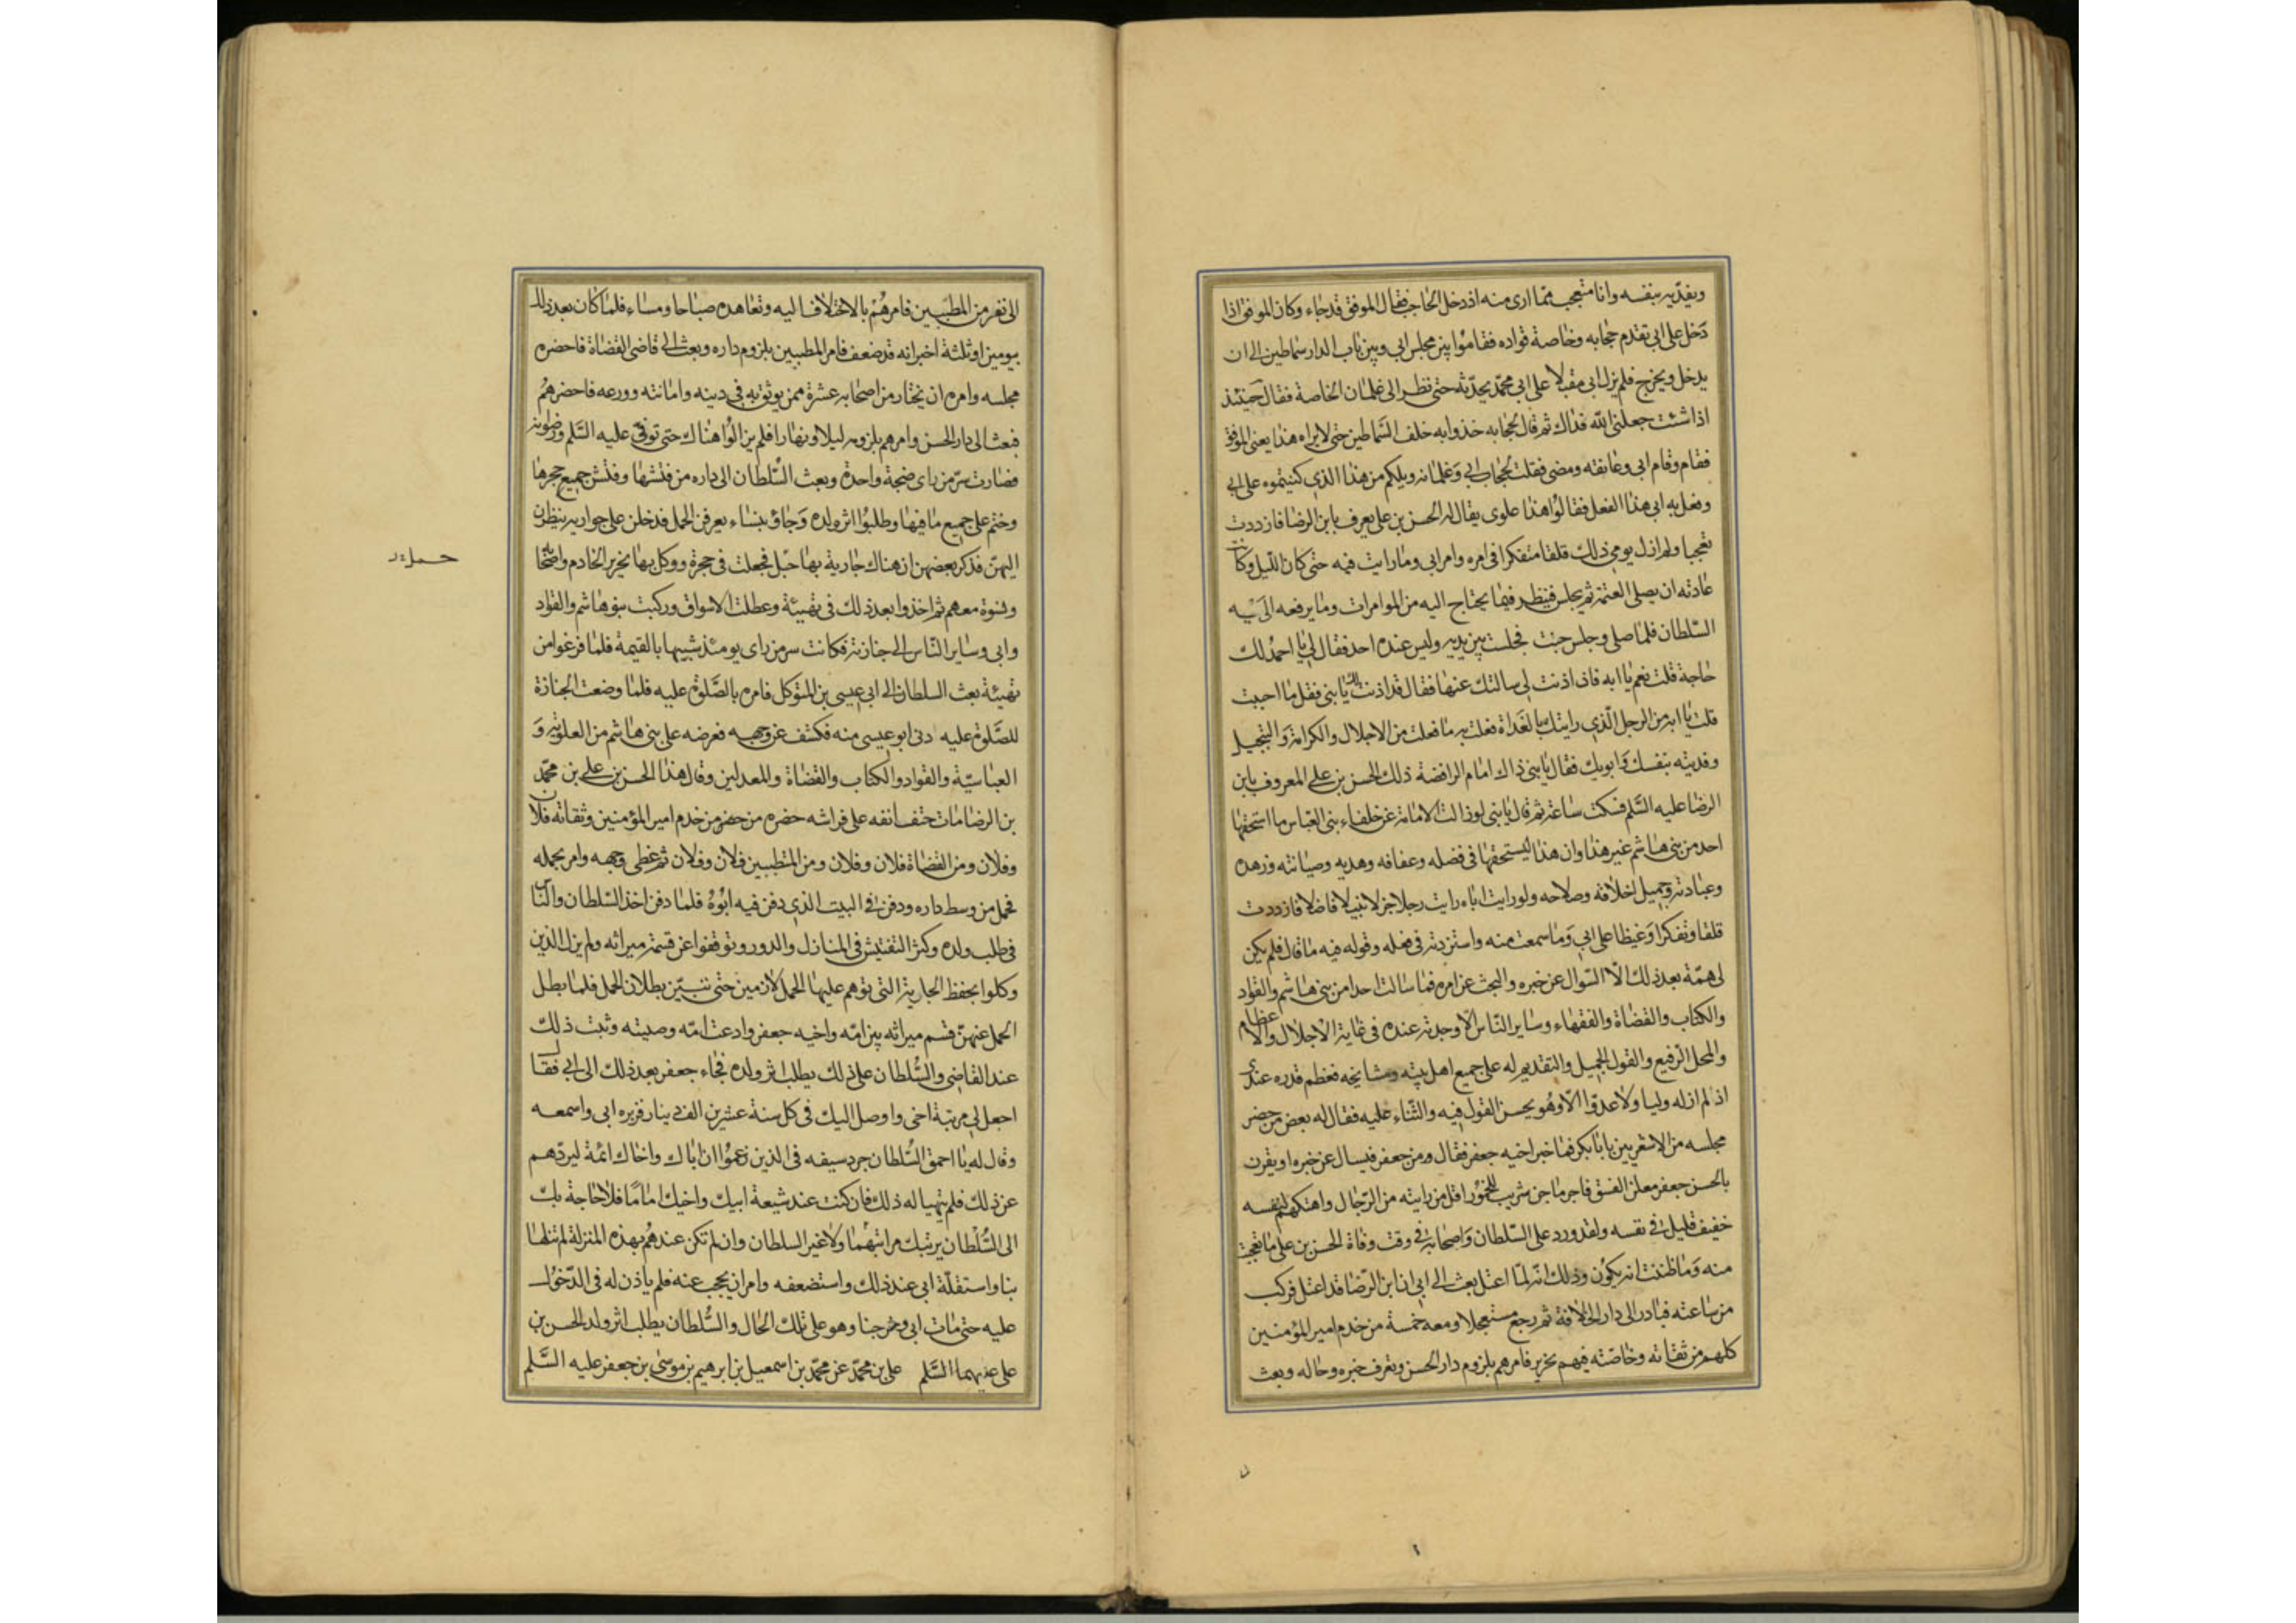 ويفديه بنفسه وانا متعجب مما ارى منه اذ دخل الحاجب فقال الموفق قد جاء وكان الموفق اذا
دخل على ابي تقدم حجابه وخاصة قواده فقاموا بين مجلس ابي وبين باب الدار سماطين الى ان
يدخل ويخرج فلم يزل ابي مقبلا على ابي محمد يحدثه حتى نظر الى غلمان الخاصة فقال حينئذ
اذا شئت جعلني الله فداك ثم قال لحجابه خذوا به خلف السماطين حتى لا يراه هذا يعني الموفق
فقام وقام ابي وعانقه ومضى فقلت لحجاب ابي وغلمانه ويلكم من هذا الذي كنيتموه على ابي
وفعل به ابي هذا الفعل فقالوا هذا علوى يقال له الحسن بن على يعرف بابن الرضا فازددت
تعجبا ولم ازل يومي ذلك قلقا متفكرا في امره وامر ابي وما رايت فيه حتى كان الليل وكانت
عادته ان يصلى العتمة ثم يجلس فينظر فيما يحتاج اليه من الموامرات وما يرفعه الى
السلطان فلما صلى وجلس جئت فجلست بين يديه وليس عنده احد فقال لي يا احمد لك
حاجة قلت نعم يا ابه فان اذنت لي سالتك عنها فقال قد اذنت لك يا بنى فقل ما احببت
قلت يا ابه من الرجل الذي رايتك بالغداة فعلت به ما فعلت من الاجلال والكرامة والتبجيل
وفديته بنفسك وابويك فقال يا بنى ذاك امام الرافضة ذلك الحسن بن على المعروف بابن
الرضا عليه السلم فسكت ساعة ثم قال يا بنى لو زالت الامامة عن خلفاء بنى العباس ما استحقها
احد من بنى هاشم غير هذا وان هذا ليستحقها في فضله وعفافه وهديه وصيانته وزهده
وعبادته وجميل اخلاقه وصلاحه ولو رايت اباه رايت رجلا جزلا نبيلا فاضلا فازددت
قلقا وتفكرا وغيظا على ابي وما سمعت منه واستزدته في فعله وقوله فيه ما قال فلم يكن
لى همة بعد ذلك الا السوال عن خبره والبحث عن امره فما سالت احدا من بنى هاشم والقواد
والكتاب والقضاة والفقهاء وساير الناس الا وجدته عنده في غاية الاجلال والاعظام
والمحل الرفيع والقول الجميل والتقديم له على جميع اهل بيته ومشايخه فعظم قدره عندي
اذ لم ار له وليا ولا عدوا الا وهو يحسن القول فيه والثناء عليه فقال له بعض من حضر
مجلسه من الاشعريين يا ابا بكر فما خبر اخيه جعفر فقال ومن جعفر فيسال عن خبره او يقرن
بالحسن جعفر معلن الفسق فاجر ماجن شريب للخمور اقل من رايته من الرجال واهتكهم لنفسه
خفيف قليل في نفسه ولقد ورد على السلطان واصحابه في وقت وفاة الحسن بن على ما تعجبت
منه وما ظننت انه يكون وذلك انه لما اعتل بعث الى ابي ان ابن الرضا قد اعتل فركب
من ساعته فبادر الى دار الخلافة ثم رجع مستعجلا ومعه خمسة من خدم امير المؤمنين
كلهم من ثقاته وخاصته فيهم نحرير فامرهم بلزوم دار الحسن وتعرف خبره وحاله وبعث
الى نفر من المطببين فامرهم بالاختلاف اليه وتعاهده صباحا ومساء فلما كان بعد ذلك
بيومين او ثلثة اخبر انه قد ضعف فامر المطببين بلزوم داره وبعث الى قاضى القضاة فاحضره
مجلسه وامره ان يختار من اصحابه عشرة ممن يوثق به في دينه وامانته وورعه فاحضرهم
فبعث الى دار الحسن وامرهم بلزومه ليلا ونهارا فلم يزالوا هناك حتى توفي عليه السلم
فصارت سر من راى ضجة واحدة وبعث السلطان الى داره من فتشها وفتش جميع حجرها
وختم على جميع ما فيها وطلبوا اثر ولده وجاؤ بنساء يعرفن الحمل فدخلن على جواريه ينظرن
اليهن فذكر بعضهن ان هناك جارية بها حبل فجعلت في حجرة ووكل بها نحرير الخادم واصحابه
ونسوة معهم ثم اخذوا بعد ذلك في تهيئة وعطلت الاسواق وركبت بنو هاشم والقواد
وابي وساير الناس الى جنازته فكانت سر من راى يومئذ شبيها بالقيمة فلما فرغوا من
تهيئة بعث السلطان الى ابي عيسى بن المتوكل فامره بالصلوة عليه فلما وضعت الجنازة
للصلوة عليه دنى ابو عيسى منه فكشف عن وجهه فعرضه على بنى هاشم من العلوية و
العباسية والقواد والكتاب والقضاة والمعدلين وقال هذا الحسن بن على بن محمد
بن الرضا مات حتف انفه على فراشه حضره من حضر من خدم امير المؤمنين وثقاته فلان
وفلان ومن القضاة فلان وفلان ومن المتطببين فلان وفلان ثم غطى وجهه وامر بحمله
فحمل من وسط داره ودفن في البيت الذي دفن فيه ابوه فلما دفن اخذ السلطان والناس
في طلب ولده وكثر التفتيش في المنازل والدور وتوقفوا عن قسمة ميراثه ولم يزل الذين
وكلوا بحفظ الجارية التي توهم عليها الحمل لازمين حتى تبين بطلان الحمل فلما بطل
الحمل عنهن قسم ميراثه بين امه واخيه جعفر وادعت امه وصيته وثبت ذلك
عند القاضي والسلطان على ذلك يطلب اثر ولده فجاء جعفر بعد ذلك الى ابي فقال
اجعل لي مرتبة اخي واوصل اليك في كل سنة عشرين الف دينار فزبره ابي واسمعه
وقال له يا احمق السلطان جرد سيفه في الذين زعموا ان اباك واخاك ائمة ليردهم
عن ذلك فلم يتهيا له ذلك فان كنت عند شيعة ابيك واخيك اماما فلا حاجة بك
الى السلطان يرتبك مراتبهما ولا غير السلطان وان لم تكن عندهم بهذه المنزلة لم تنلها
بنا واستقله ابي عند ذلك واستضعفه وامر ان يحجب عنه فلم ياذن له في الدخول
عليه حتى مات ابي وخرجنا وهو على تلك الحال والسلطان يطلب اثر ولد الحسن بن
على عليهما السلم على بن محمد عن محمد بن اسمعيل بن ابرهيم بن موسى بن جعفر عليه السلم